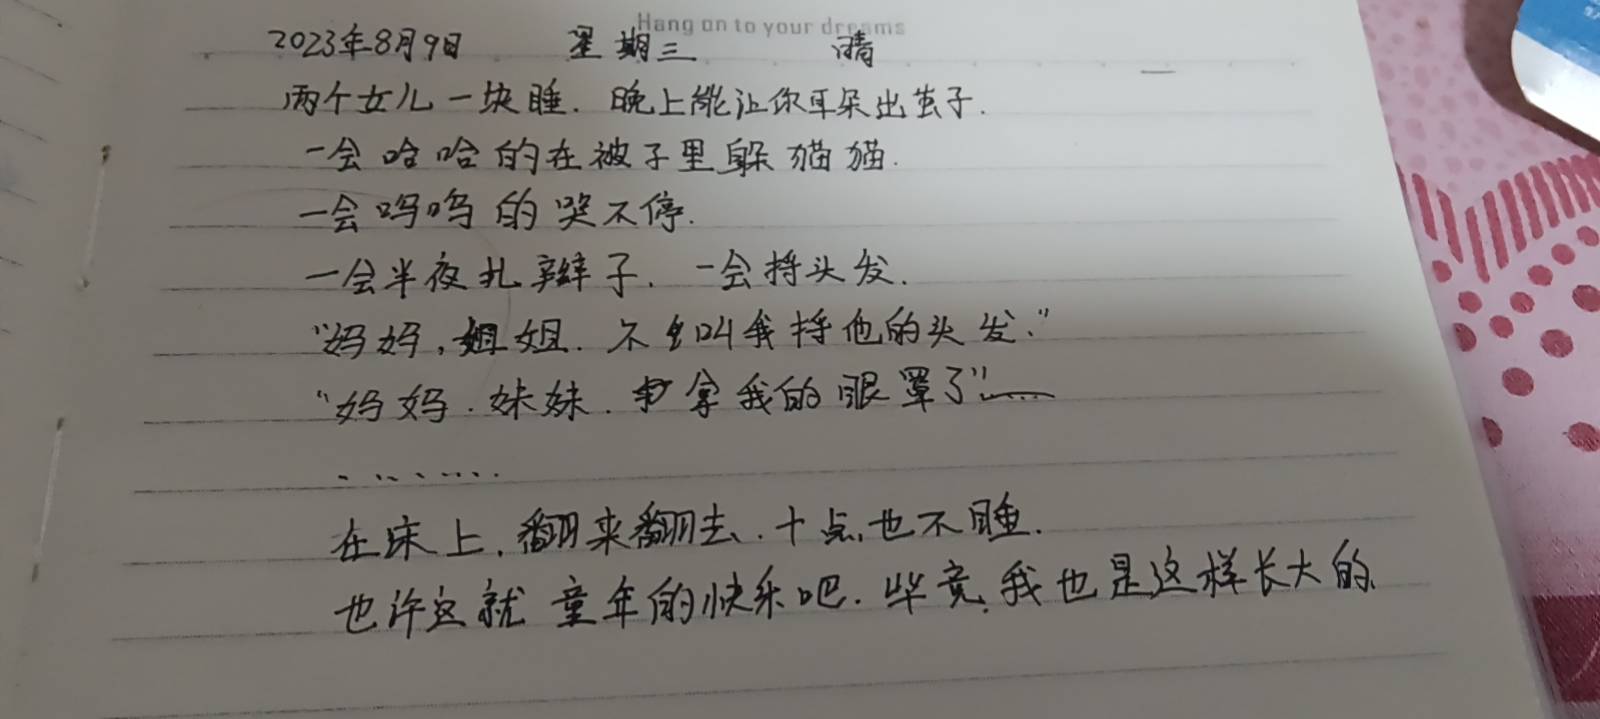 Hang on to your dreams
2023年8月9日 星期三 晴
两个女儿一块睡.晚上能让你耳朵出茧子.
一会哈哈的在被子里躲猫猫.
一会呜呜的哭不停.
一会半夜扎辫子.一会捋头发.
"妈妈,姐姐.不叫我捋他的头发."
"妈妈.妹妹.拿我的眼罩了"……
........
在床上.翻来翻去.十点也不睡.
也许这就童年的快乐吧.毕竟,我也是这样长大的